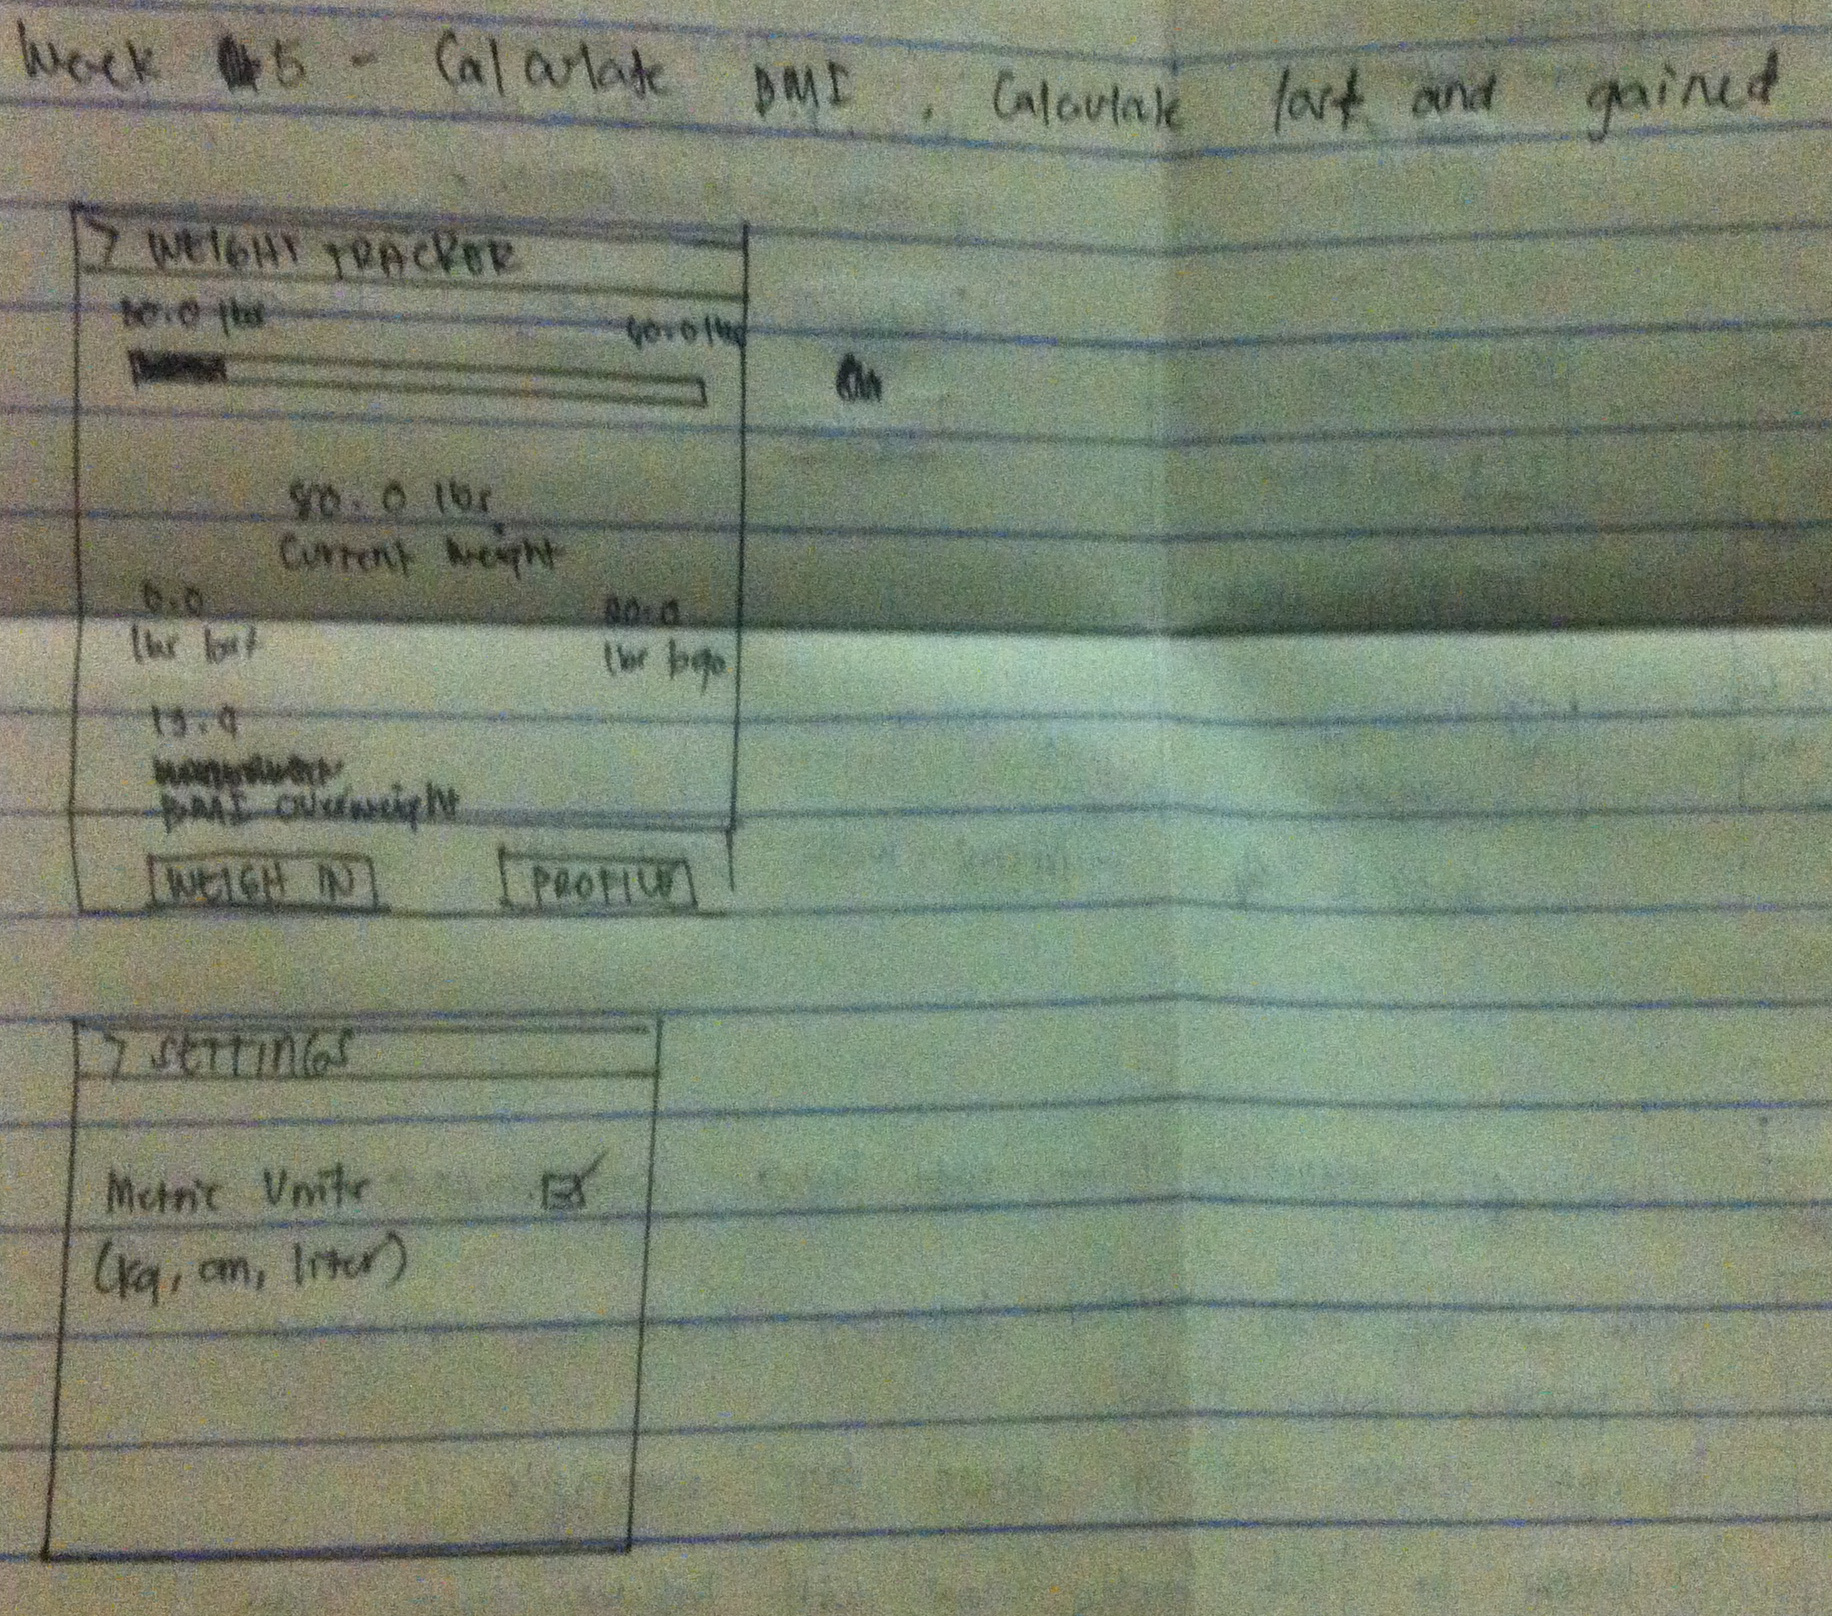 Week 5 - Calculate BMI, Calculate lost and gained
> WEIGHT TRACKER
80.0 lbs 60.0 lbs
80.0 lbs
Current Weight
0.0 20.0
lbs lost lbs to go
BMI Overweight
WEIGH IN PROFILE
> SETTINGS
Metric Units
(kg, cm, liter)